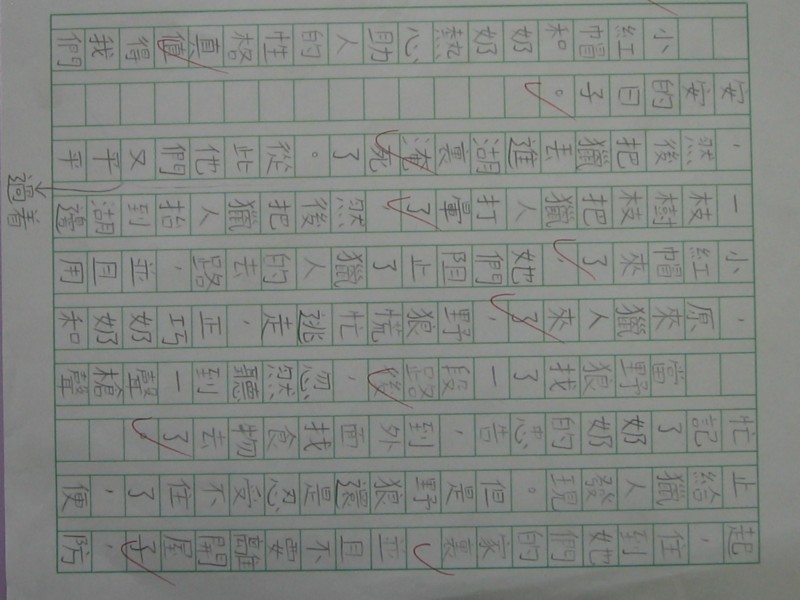 起，住到她們的家裏並且不要離開屋子，防
止給獵人發現。但是野狼還是忍受不住了，便
忙記了奶奶的忠告，到外面找食物去了
當野狼找了一段路後，忽然聽到一聲槍聲
，原來獵人來了，野狼慌忙逃走，正巧奶奶和
小紅帽來了，她們阻止了獵人的去路，並且用
一枝樹枝把獵人打暈了，然後把獵人抬到湖邊
，然後把獵丟進湖裏淹死了。從此他們又平平
過着
安安的日子。
小紅帽和奶奶熱心助人的性格真值得我們